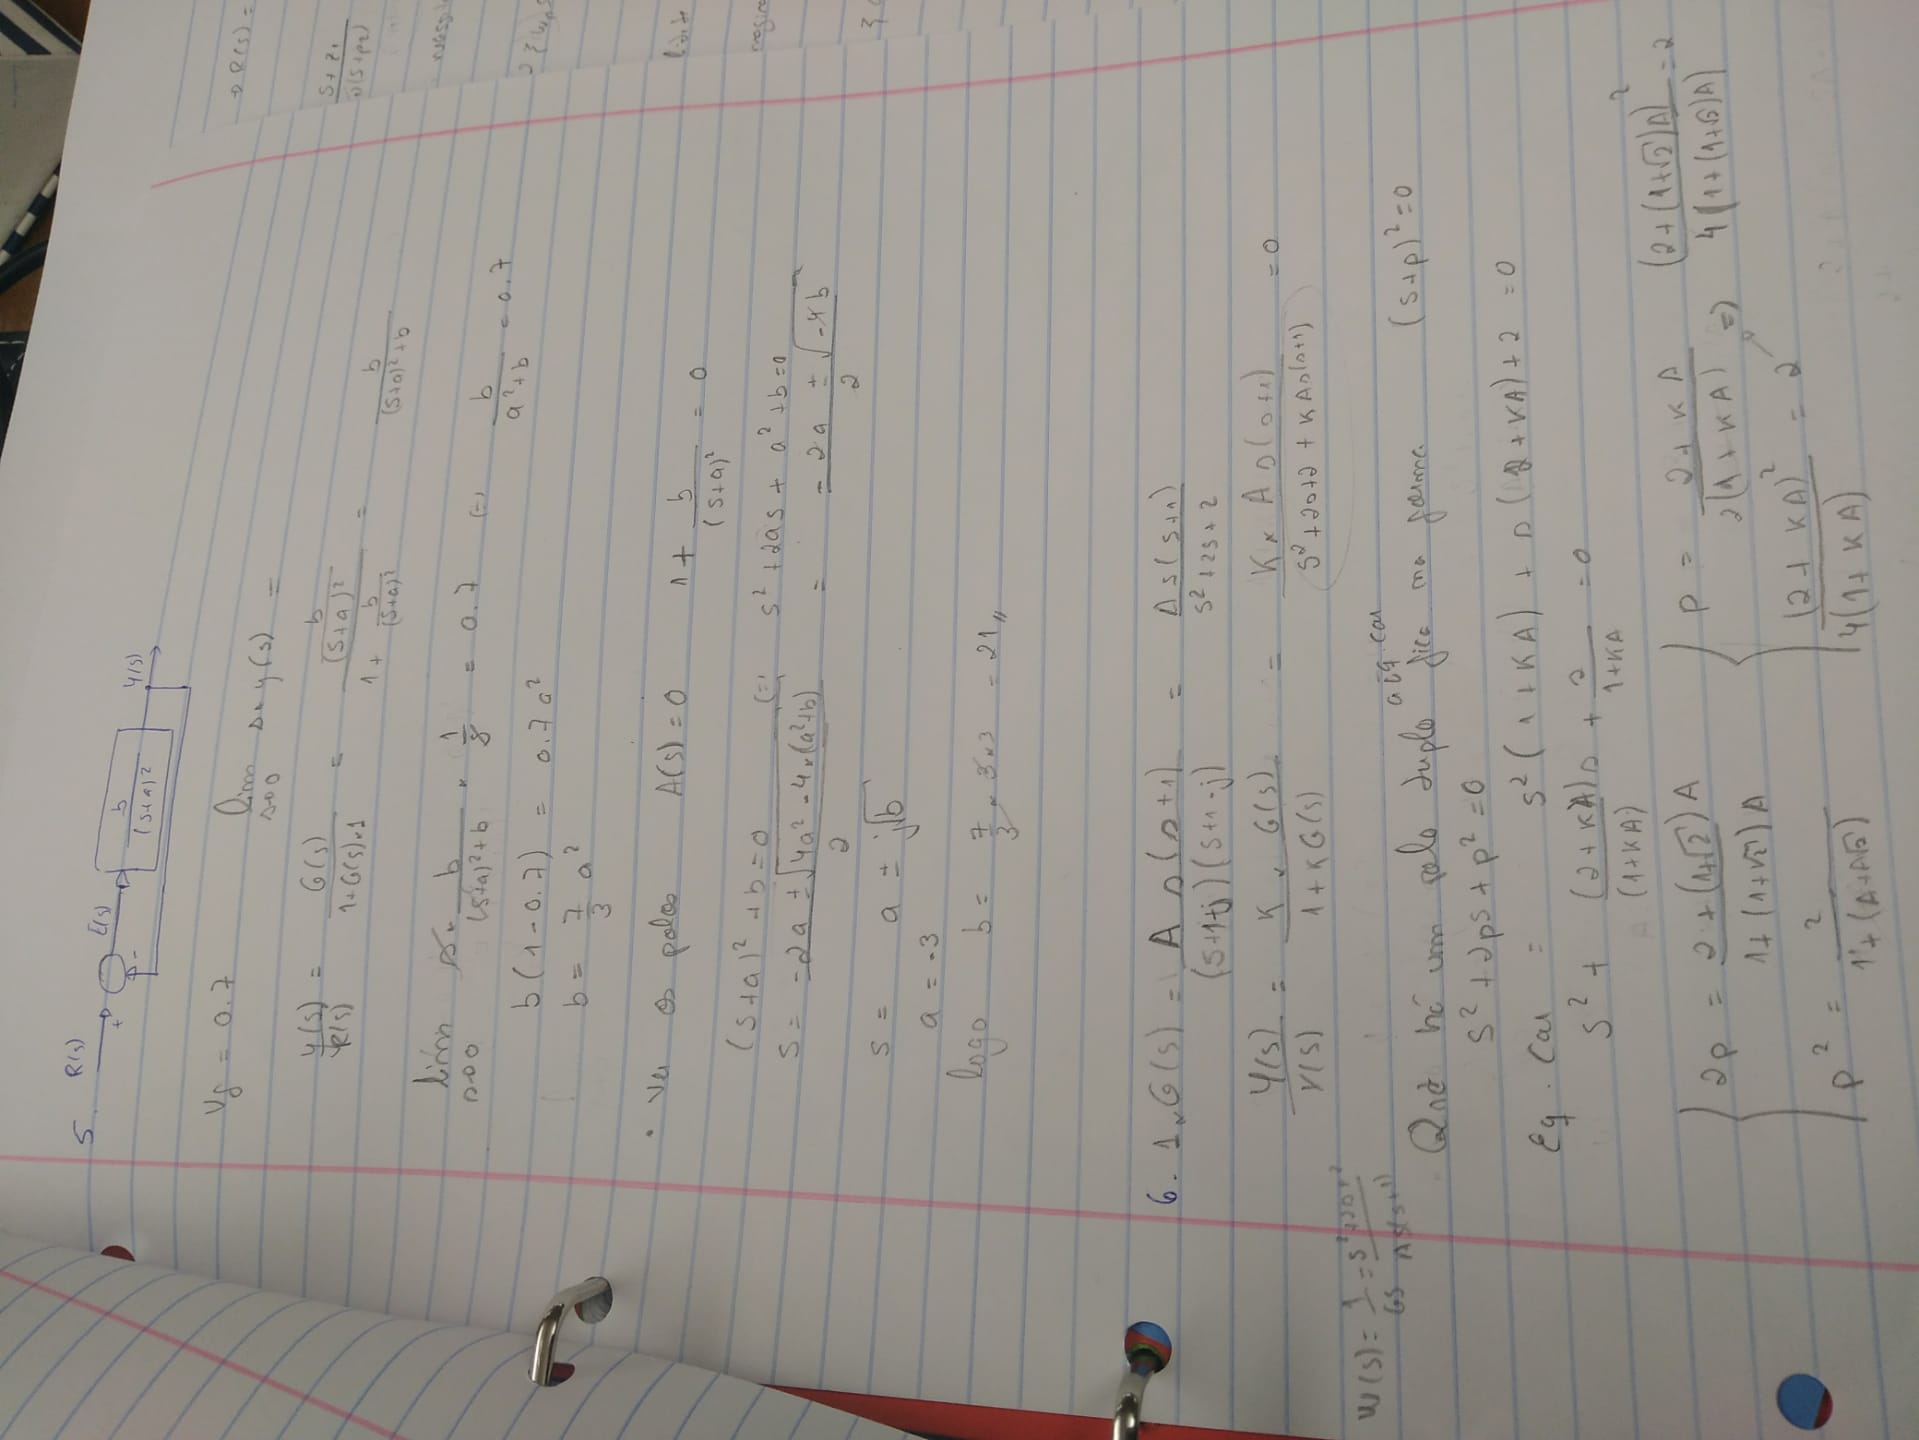 5. R(s) + - E(s) b/(s+a)² Y(s)
Vf = 0.7 lim s→0 s×y(s) =
Y(s)/R(s) = G(s)/(1+G(s)×1) = (b/(s+a)²)/(1 + b/(s+a)²) = b/((s+a)²+b)
lim s→0 s × b/((s+a)²+b) × 1/s = 0.7 (=) b/(a²+b) = 0.7
b(1-0.7) = 0.7a²
b = 7/3 a²
• Ver os polos A(s)=0 1 + b/(s+a)² = 0
(s+a)² + b = 0 (=) s² + 2as + a² + b = 0
s = (-2a ± √(4a² - 4×(a²+b)))/2 = (-2a ± √(-4b))/2
s = a ± j√b
a = -3
logo b = 7/3 × 3×3 = 21,,
6. 1×G(s) = A s(s+1)/((s+1+j)(s+1-j)) = As(s+1)/(s²+2s+2)
Y(s)/r(s) = K × G(s)/(1+KG(s)) = K×A s(s+1)/(s²+2s+2 + KAs(s+1)) = 0
W(s) = 1/GS = s²+2s+2/(As(s+1))
Qnd há um polo duplo a eq. car fica na forma (s+p)²=0
s² + 2ps + p² = 0
Eq. Car = s²(1+KA) + s(2+KA) + 2 = 0
s² + (2+KA)s/(1+KA) + 2/(1+KA) = 0
{ 2p = (2+(1+√2)A)/(1+(1+√2)A) { p = (2+KA)/(2(1+KA)) => (2+(1+√2)A)²/(4(1+(1+√2)A)) = 2
p² = 2/(1+(A+A√2)) (2+KA)²/(4(1+KA)) = 2